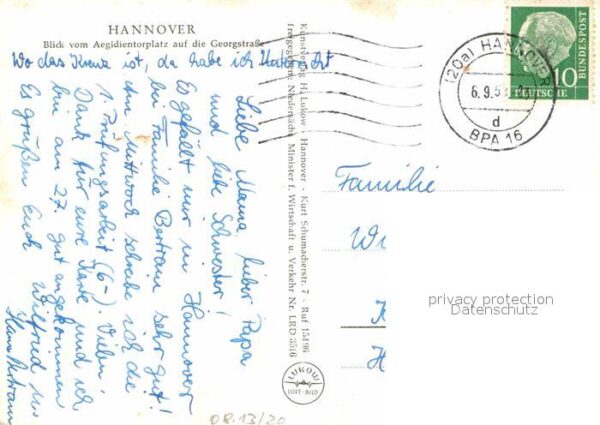 HANNOVER
Blick vom Aegidientorplatz auf die Georgstraße
Wo das Kreuz ist, da habe ich Unterricht
Liebe Mama, lieber Papa
und liebe Schwester!
Es gefällt mir in Hannover
bei Familie Bertram sehr gut!
Am Mittwoch schreibe ich die
1. Prüfungsarbeit (6-). Vielen
Dank für eure Karte und ich
bin am 27. gut angekommen
Es grüßen Euch Wilfried u.
Hans Bertram
Künstverlag H. Lukow · Hannover · Kurt Schumacherstr. 7 · Ruf 15496
Freigegeben: Niedersächs. Minister f. Wirtschaft u. Verkehr Nr. LRD 3516
LUKOW
LUFT-BILD
(20a) HANNOVER
6.9.5
d
BPA 16
DEUTSCHE
BUNDESPOST
10
Familie
Wi
K
H
privacy protection
Datenschutz
08.13/20